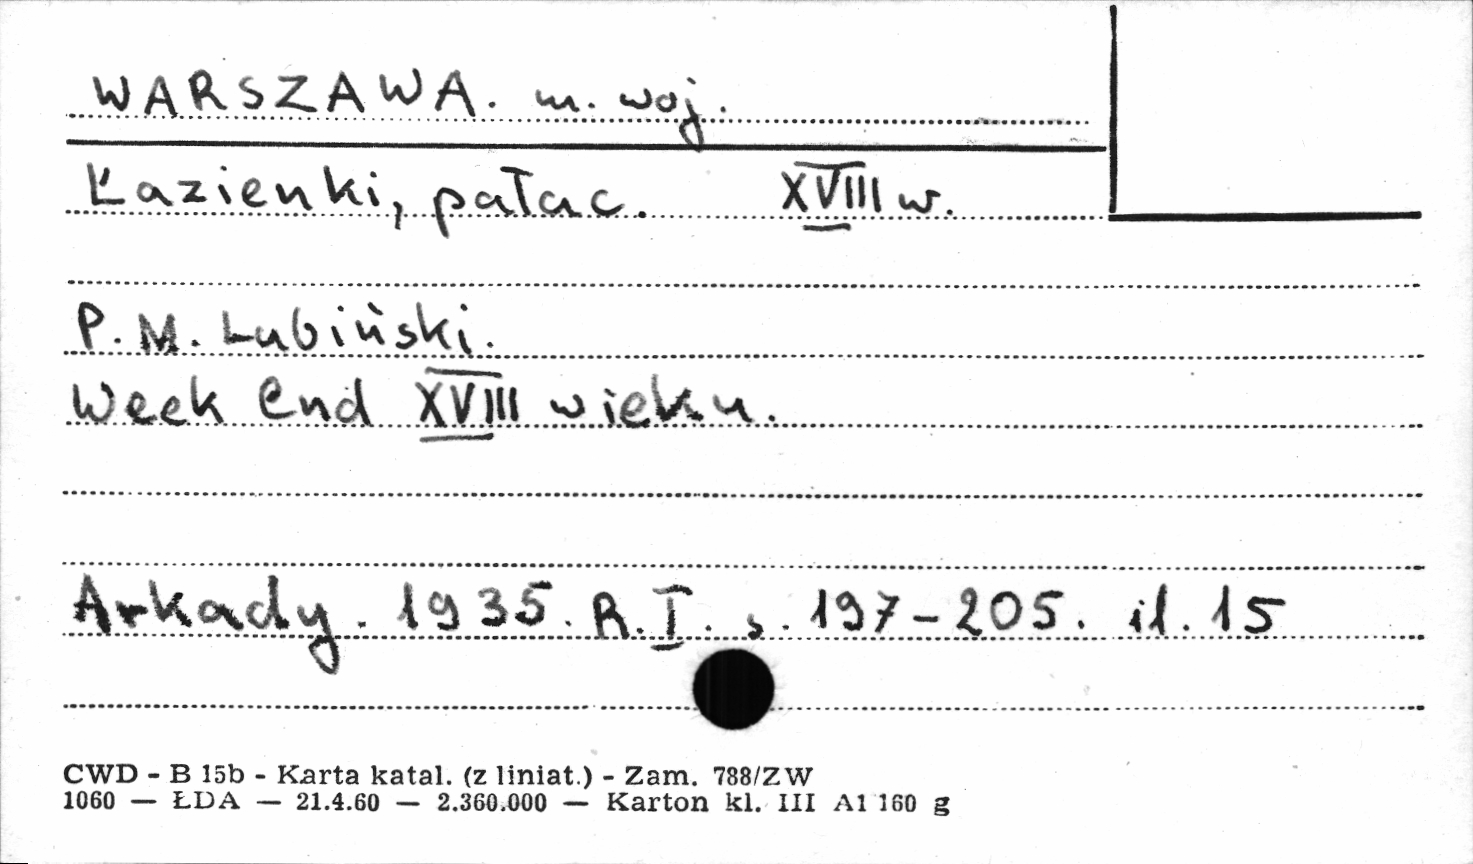 WARSZAWA. m. woj.
Łazienki, pałac. XVIII w.
P. M. Lubiński.
Week End XVIII wieku.
Arkady. 1935. R. I. s. 197-205. il. 15
CWD - B 15b - Karta katal. (z liniat.) - Zam. 788/ZW
1060 — ŁDA — 21.4.60 — 2.360.000 — Karton kl. III A1 160 g